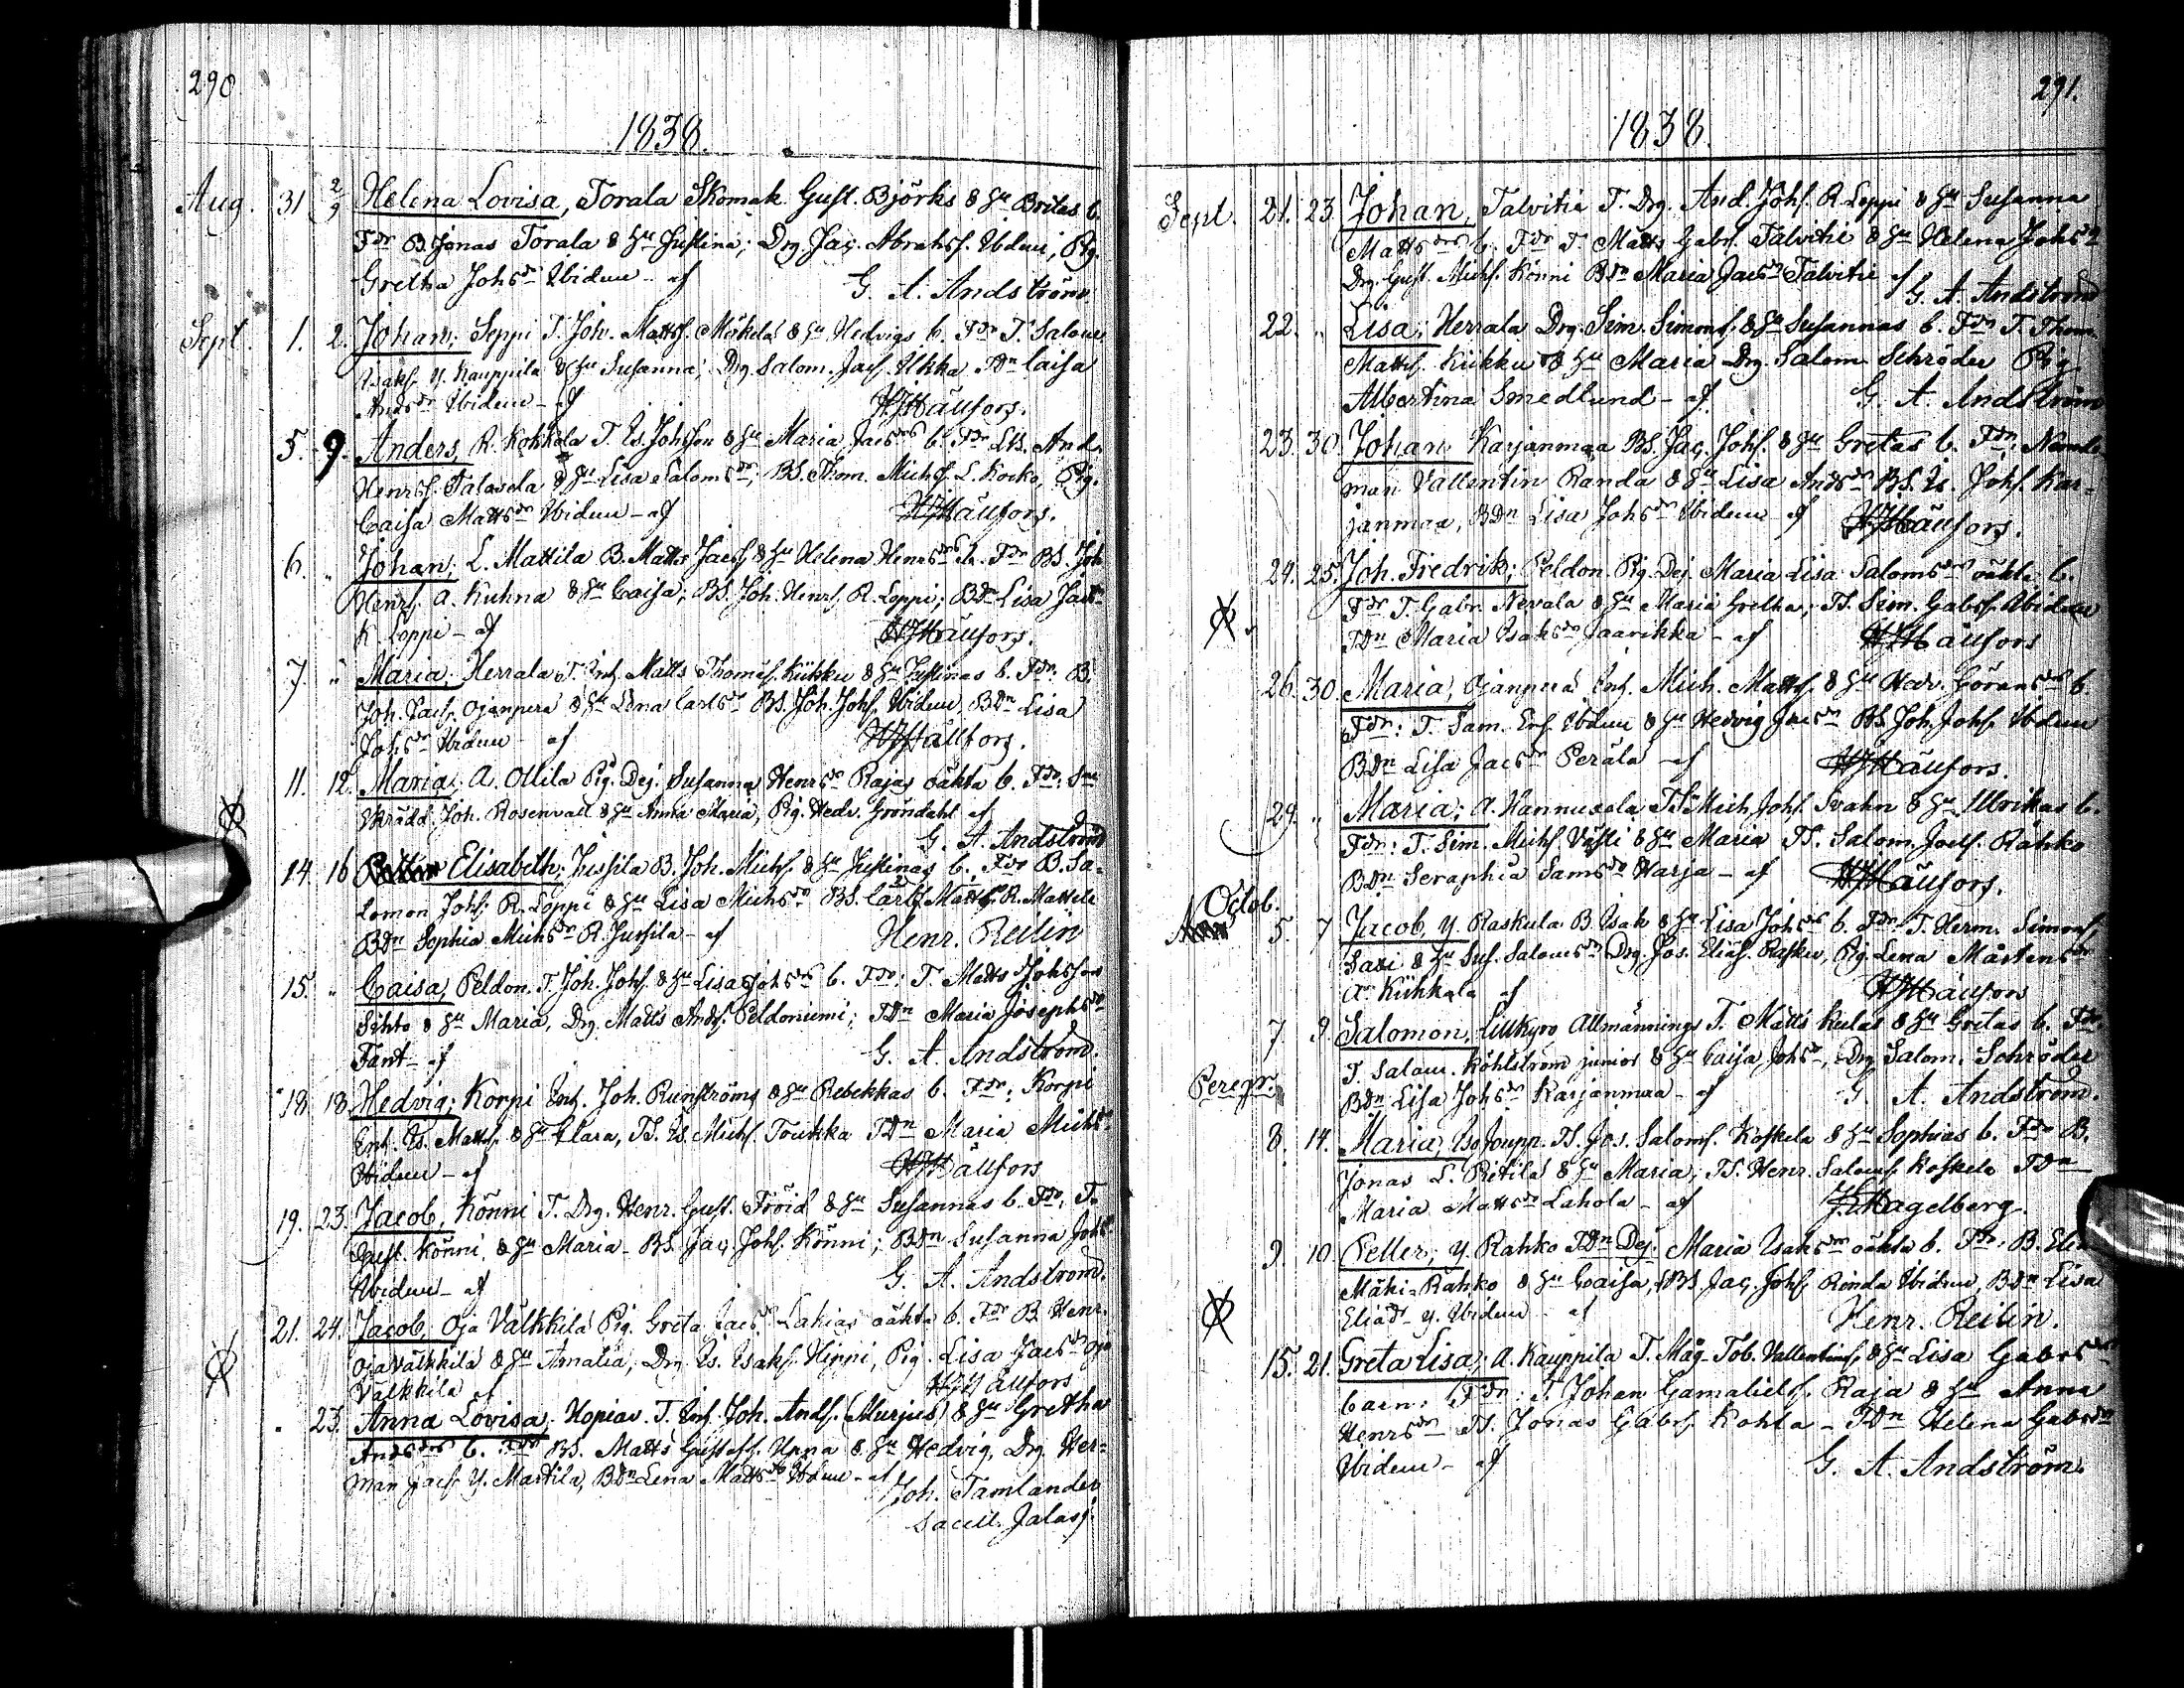 290.
1838.
Aug. 31 2/9 Helena Lovisa, Torala Skomak. Gust. Björks & Hu Britas b.
Fdr B. Jonas Torala & Hu Justina; Drg Jac. Abrahsf. Ibidem, Pig.
Gretha Johsdr Ibidem - af G. A. Andström
Sept. 1. 2. Johan; Seppi T. Joh. Mattsf. Mäkelä & Hu Hedvigs b. Fdr T. Salom
Isaksf. Y. Kauppila & Hu Susanna; Drg Salom. Jacsf. Ilkka TDn Caisa
Andsdr Ibidem - af HJHällfors.
5. 9. Anders, R. Kokkola T. Is. Johsson & Hu Maria Jacsdrs b. Fdr LB. And.
Henrsf. Talasela & Hu Lisa Salomsdr; BS. Thom. Michsf. L. Kocko, Pig.
Caisa Mattsdr Ibidem - af HJHällfors.
6. " Johan; L. Mattila B. Matts Jacsf. & Hu Helena Henrsdrs b. Fdr BS. Joh
Henrsf. A. Kuhna & Hu Caisa; BS. Joh. Henrsf. R. Loppi; BDr Lisa Jacsdr
K. Loppi - af HJHällfors.
7. " Maria; Herrala T. Inh. Matts Thomsf. Kiikku & Hu Justinas b. Fdr: B.
Joh. Jacsf. Ojanpera & Hu Lena Carlsdr BS. Joh. Johsf. Ibidem, BDn Lisa
Johsdr Ibidem - af HJHällfors.
11. 12. Maria; A. Ollila Pig. Dej. Susanna Henrsdr Rajas oäkta b. Fdr: Sn
Skrädd. Joh. Rosenvall & Hu Anna Maria, Pig. Hedv. Gröndahl af
G. A. Andström
14. 16 Elisabeth; Jussila B. Joh. Michsf. & Hu Justinas b. Fdr B. Sa-
lomon Johsf. R. Loppi & Hu Lisa Michsdr BS. Carl Mattsf. R. Mattila
BDn Sophia Michsdr R. Jussila - af Henr. Reilin
15. " Caisa; Peldon. T. Joh. Johsf. & Hu Lisa Johsdrs b. Fdr: T. Matts Johsson
Sihto & Hu Maria, Drg. Matts Andsf. Peldoniemi; TDn Maria Josephsdr
Fant - af G. A. Andström.
18. 18. Hedvig; Korpi Inh. Joh. Runströms & Hu Rebekkas b. Fdr; Korpi
Inh. Is. Mattsf. & Hu Clara, TS. Is. Michsf. Toukka TDn Maria Michsdr
Ibidem - af HJHällfors
19. 23. Jacob, Könni T. Drg. Henr. Gust. Fröid & Hu Susannas b. Fdr, T.
Gust. Könni, & Hu Maria - BS. Jac. Johsf. Könni; BDn Susanna Johsdr
Ibidem - af G. A. Andström.
21. 24. Jacob, Oja Välkkilä Pig. Greta Jacsdr Lahias oäkta b. Fdr B. Henr.
Ojavälkkilä & Hu Amalia; Drg Is. Isaksf. Hippi, Pig. Lisa Jacsdr Oja
Välkkilä af HJHällfors
" 23. Anna Lovisa; Kopiav. T. Inh. Joh. Andsf. (Murjus) & Hu Gretha
Andsdrs b. Fdr BS. Matts Gustafsf. Upna & Hu Hedvig, Drg Her-
man Jacsf. Y. Marttila, BDn Lena Mattsdr Ibdem - af Joh. Tamlander
Sacell. Jalasj.
291.
1838.
Sept. 21. 23. Johan, Talvitia T. Drg. And. Johsf. R. Loppi & Hu Susanna
Mattsdrs b. Fdr T. Matts Gabrsf. Talvitie & Hu Helena Johsdr
Drg. Gust. Michsf. Könni BDn Maria Jacsdr Talvitie af G. A. Andström
22. " Lisa; Herrala Drg. Sim. Simonsf. & Hu Susannas b. Fdr T. Thom.
Mattsf. Kiikku & Hu Maria Drg. Salom. Schröder Pig
Albertina Smedlund - af G. A. Andström
23. 30. Johan; Karjanmaa BS. Jac. Johsf. & Hu Gretas b. Fdr: Nämde-
man Vallentin Randa & Hu Lisa Andsdr BS. Is. Johsf. Kar-
janmaa, BDn Lisa Johsdr Ibidem af HJHällfors.
24. 25. Joh. Fredrik; Peldon. Pig. Dej. Maria Lisa Salomsdrs oäkta b.
Fdr T. Gabr. Nevala & Hu Maria Gretha; TS. Sim. Gabrsf. Ibidem
TDn Maria Isaksdr Jaarikka - af HJHällfors
26. 30. Maria; Ojanperä Inh. Mich. Mattsf. & Hu Hedv. Göransdrs b.
Fdr: T. Sam. Ersf. Ibdem & Hu Hedvig Jacsdr BS. Joh. Johsf. Ibdem
BDn Lisa Jacsdr Perälä af HJHällfors.
29. " Maria; A. Hannuksela TS. Mich. Johsf. Svahn & Hu Ulrikas b.
Fdr: T. Sim. Michsf. Västi & Hu Maria TS. Salom. Joelsf. Rahko
BDn Seraphia Samsdr Harja - af HJHällfors.
Octob. 5 7 Jacob, Y. Raskula B. Isak & Hu Lisa Johsdrs b. Fdr: T. Herm. Simonsf.
Saxi & Hu Sus. Salomsdr Drg. Jos. Eliasf. Rasku, Pig. Lena Mårtensdr
A. Kiikkala af HJHällfors
7 9. Salomon, Lillkyro Allmännings T. Matts Kulas & Hu Gretas b. Fdr.
T. Salom. Kohlström junior & Hu Caisa Johsdr, Drg. Salom. Schröder
Peregr. BDn Lisa Johsdr Karjanmaa - af G. A. Andström.
8. 14. Maria; Isojoupp. TS. Jos. Salomsf. Koskela & Hu Sophias b. Fdr B.
Jonas L. Pitilä & Hu Maria; TS. Henr. Salomsf. Koskela TDn
Maria Mattsdr Lahola - af Hagelberg.
9. 10. Petter; Y. Rahko TDn Dej. Maria Isaksdrs oäkta b. Fdr: B. Elia
Mäki-Rahko & Hu Caisa, BS Jac. Johsf. Rinda Ibidem, BDn Lisa
Eliædr Y. Ibidem af Henr. Reilin.
15. 21. Greta Lisa; A. Kauppila T. Måg Tob. Vallentinsf. & Hu Lisa Gabrsdrs
barn; Fdr: T. Johan Gamalielsf. Raja & Hu Anna
Henrsdr TS. Jonas Gabrsf. Kohta - TDn Helena Gabrsdr
Ibidem - af G. A. Andström.